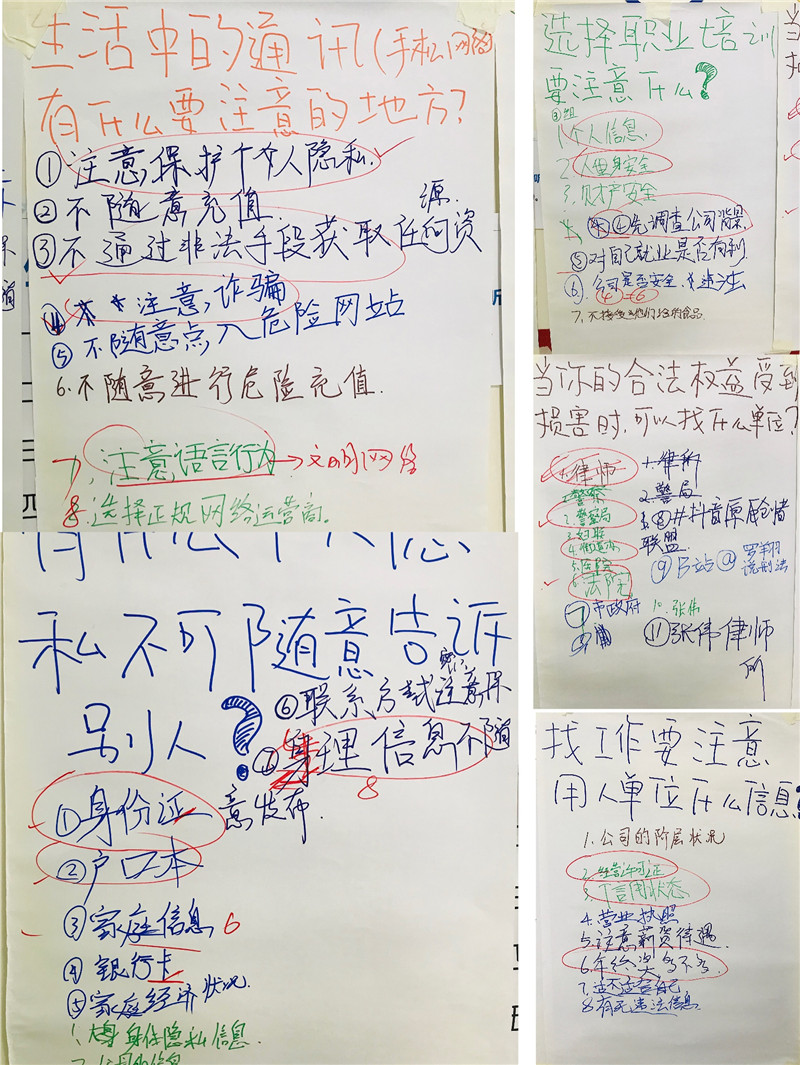 生活中的通讯(手机网络
有什么要注意的地方?
①注意保护个人隐私.
②不随意充值.
源.
③不通过非法手段获取任何资
④**注意,诈骗
⑤不随意点入危险网站
6.不随意进行危险充值.
7.注意语言行为→文明网络
8.选择正规网络运营商。
私不可随意告诉
别人?
⑥联系方式注意保
⑦身理信息不随
8
意发布.
①身份证
②户口本
③家庭信息 6
④银行卡
⑤家庭经济状况.
身体隐私信息.
选择职业培训
要注意什么?
③组
1.个人信息.
2.人身安全
3.财产安全
④先调查公司背景
⑤对自己就业是否有利.
⑥.公司是否安全.
④=⑥
7.不接受他们给的食品.
当你的合法权益受到
损害时,可以找什么单位?
1.律师
1.律所
2.警局
2.警察局
联盟.
⑨B站@罗翔
说刑法
6.法院
⑦市政府
10.张伟
⑪张伟律师
所
找工作要注意
用人单位什么信息?
1.公司的阶层状况
2.经营许可证
3.信用状态
4.营业执照
5.注意薪资待遇.
6.年终奖多不多.
7.适不适合自己
8.有无违法信息.